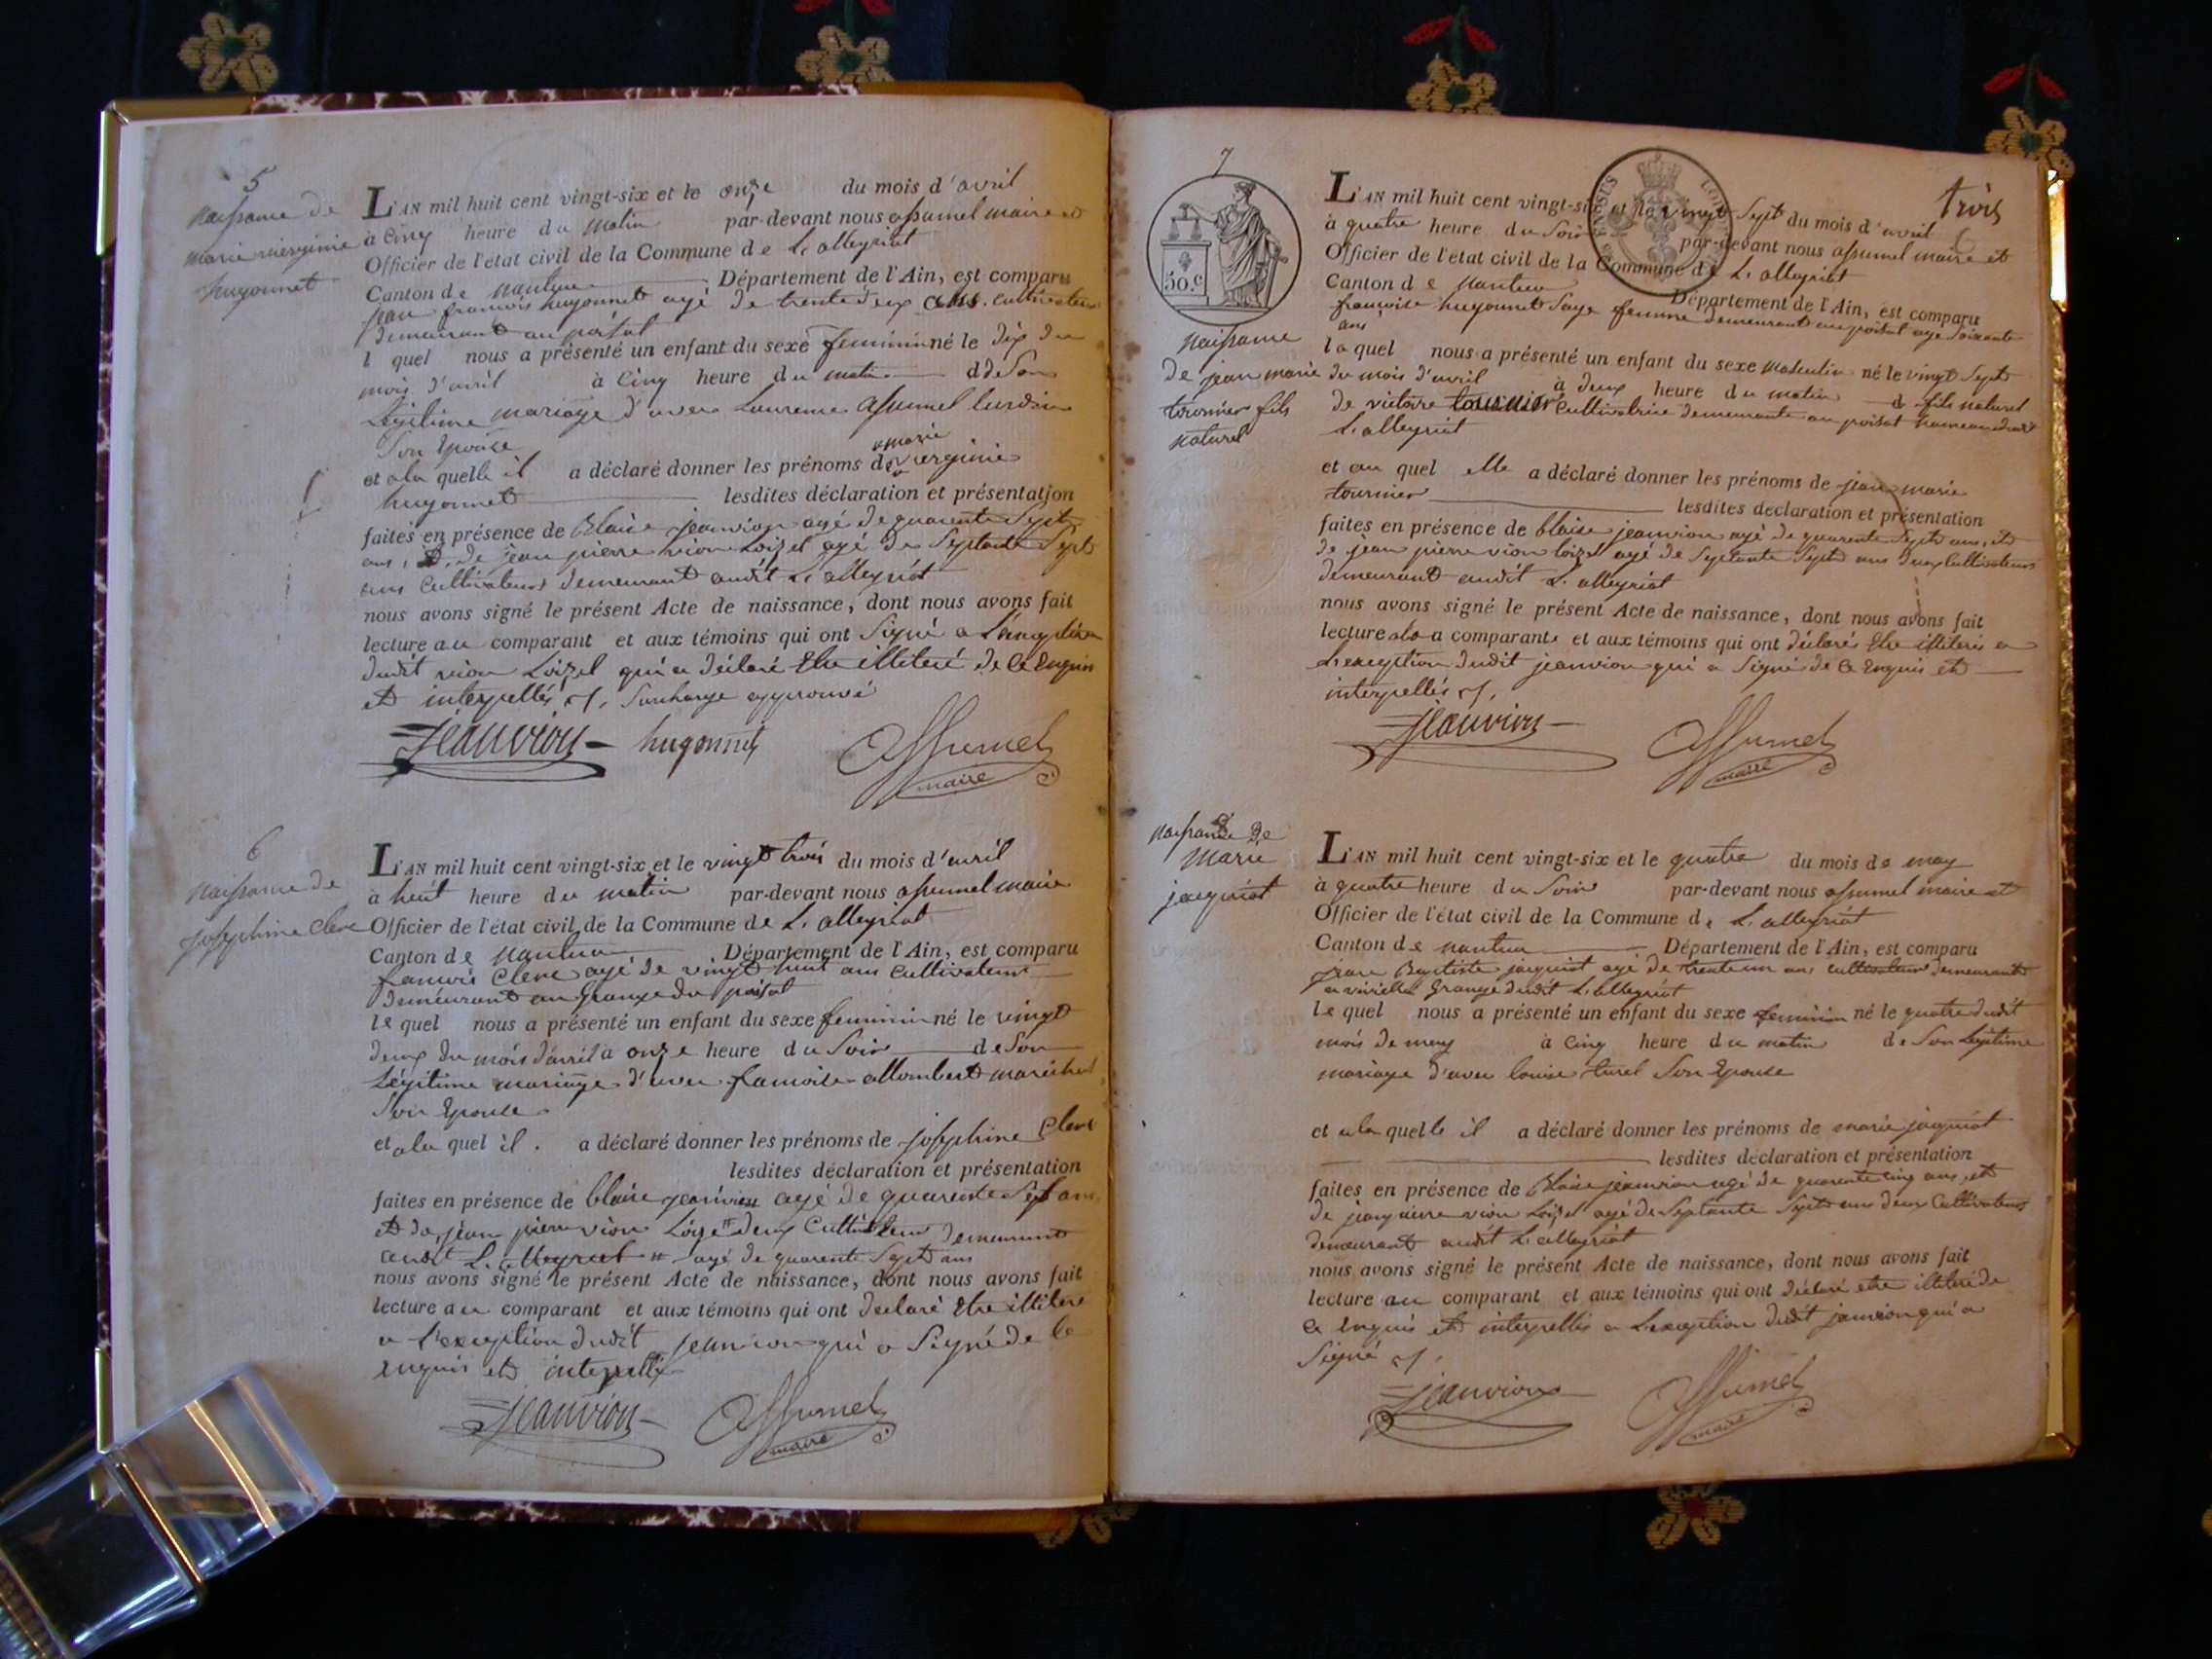 5
naissance de
marie viergimie
hugonnet
L'AN mil huit cent vingt-six et le onze du mois d'avril
à cinq heure du matin par-devant nous assumel maire et
Officier de l'état civil de la Commune de L. alleyriat
Canton de nantua Département de l'Ain, est comparu
jean francois hugonnet agé de trente deux ans cultivateur
demeurant au poisat
l quel nous a présenté un enfant du sexe feminin né le dix du
mois d'avril à cinq heure du matin d de Son
Légitime mariage d'avec Laurence assumel lurdin
Son Epouse
et a la quelle il a déclaré donner les prénoms de marie viergimie
hugonnet lesdites déclaration et présentation
faites en présence de Blaise jeanvion agé de quarente Sept
ans, et de jean pierre vion Loizel agé de Septante Sept
ans Cultivateurs demeurant audit L. alleyriat
nous avons signé le présent Acte de naissance, dont nous avons fait
lecture au comparant et aux témoins qui ont Signé a L'exception
dudit vion Loizel qui a déclaré Etre illiteré de Ce Enquis
et interpellés Surcharge approuvé
Jeanvion hugonnet Assumel
maire
6
naissance de
josephine Clerc
L'AN mil huit cent vingt-six et le vingt trois du mois d'avril
à huit heure du matin par-devant nous assumel maire
Officier de l'état civil de la Commune de L. alleyriat
Canton de nantua Département de l'Ain, est comparu
francois Clerc agé de vingt huit ans Cultivateur
demeurant au Grange du poisat
le quel nous a présenté un enfant du sexe feminin né le vingt
deux du mois d'avril à onze heure du Soir de Son
Légitime mariage d'avec francoise allombert marechal
Son Epouse
et a la quel il . a déclaré donner les prénoms de josephine Clerc
lesdites déclaration et présentation
faites en présence de blaise jeanvion agé de quarente Sept ans
et de jean pierre vion Loizel # deux Cultivateurs demeurant
audit L. alleyriat # agé de quarente Sept ans
nous avons signé le présent Acte de naissance, dont nous avons fait
lecture au comparant et aux témoins qui ont declaré Etre illiteré
a l'exception dudit jeanvion qui a Signé de Ce
enquis et interpellé
Jeanvion Assumel
maire
7
50.c
naissance
de jean marie
tournier fils
naturel
trois
L'AN mil huit cent vingt-six et le vingt Sept du mois d'avril
à quatre heure du Soir par-devant nous assumel maire et
Officier de l'état civil de la Commune de L. alleyriat
Canton de nantua Département de l'Ain, est comparu
francoise hugonnet Sage femme demeurant au poisat agé Soixante
ans
la quel nous a présenté un enfant du sexe masculin né le vingt Sept
du mois d'avril à deux heure du matin d fils naturel
de victoire tournier Cultivatrice demeurante au poisat hameau dudit
L. alleyriat
et au quel elle a déclaré donner les prénoms de jean marie
tournier lesdites declaration et présentation
faites en présence de blaise jeanvion agé de quarente Sept ans, et
de jean pierre vion loizel agé de Septante Sept ans deux Cultivateurs
demeurant audit L. alleyriat
nous avons signé le présent Acte de naissance, dont nous avons fait
lecture a la comparante et aux témoins qui ont déclarés Etre illiterés a
L'exception dudit jeanvion qui a Signé de Ce Enquis et
interpellés
Jeanvion Assumel
maire
8
naissance de
marie
jaquiot
L'AN mil huit cent vingt-six et le quatre du mois de may
à quatre heure du Soir par-devant nous assumel maire et
Officier de l'état civil de la Commune de L. alleyriat
Canton de nantua Département de l'Ain, est comparu
jean Baptiste jaquiot agé de trente un ans cultivateur demeurant
Grange dudit L. alleyriat
le quel nous a présenté un enfant du sexe feminin né le quatre dudit
mois de may à cinq heure du matin de Son Légitime
mariage d'avec louise turel Son Epouse
et a la quelle il a déclaré donner les prénoms de marie jaquiot
lesdites déclaration et présentation
faites en présence de Blaise jeanvion agé de quarente cinq ans, et
de jean pierre vion Loizel agé de Septante Sept ans deux Cultivateurs
demeurant audit L. alleyriat
nous avons signé le présent Acte de naissance, dont nous avons fait
lecture au comparant et aux témoins qui ont déclaré etre illiteré de
ce Enquis et interpellés a L'exception dudit jeanvion qui a
Signé
Jeanvion Assumel
maire